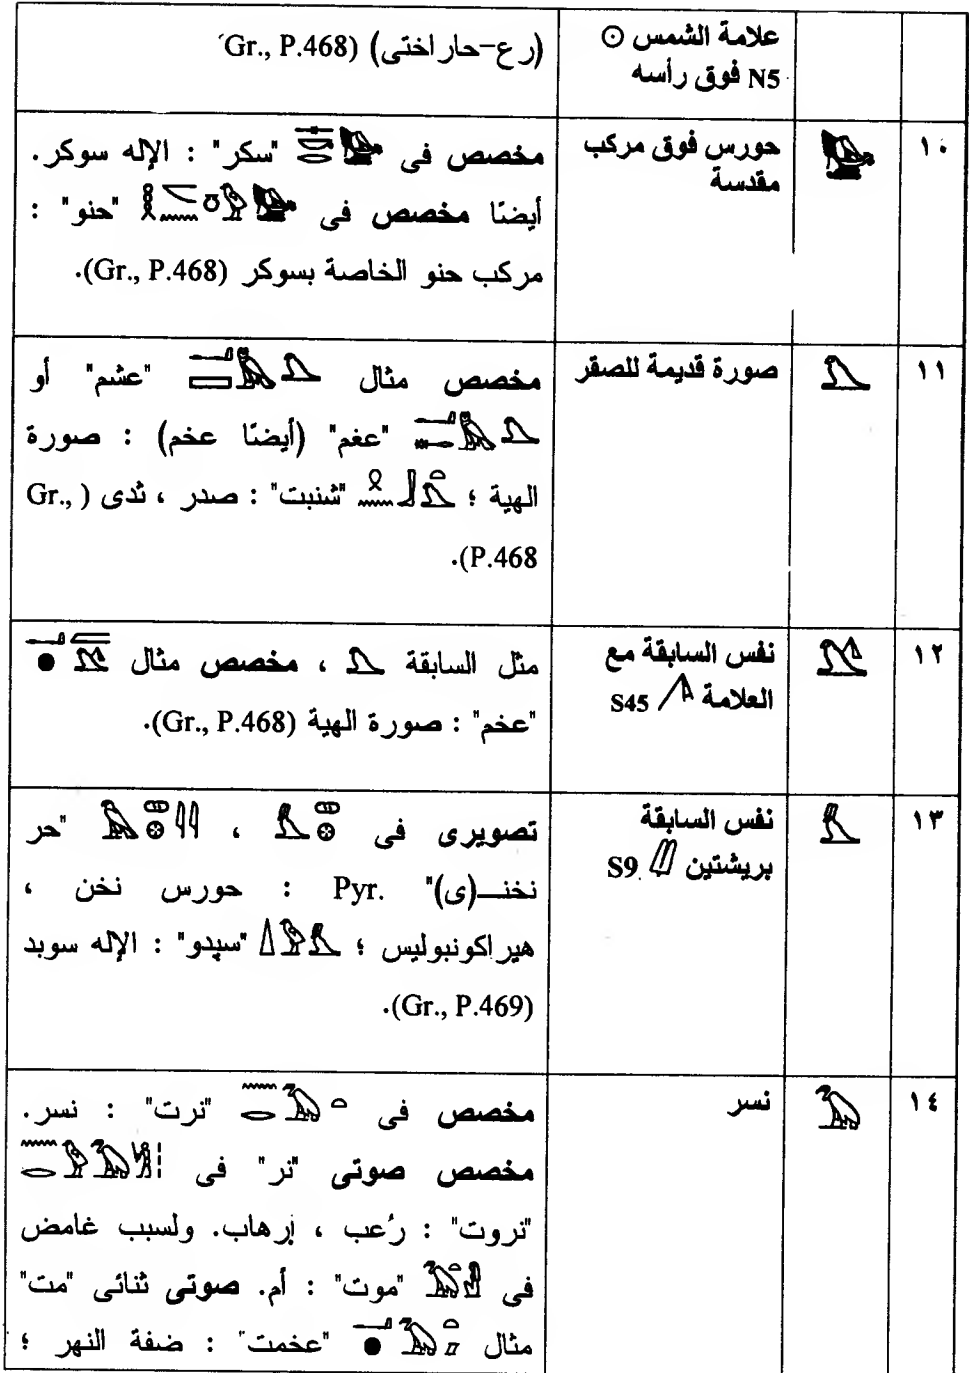 علامة الشمس ☉
N5 فوق رأسه
(رع-حار اختى) (Gr., P.468
١٠
حورس فوق مركب
مقدسة
مخصص فى "سكر" : الإله سوكر.
أيضنًا مخصص فى "حنو" :
مركب حنو الخاصة بسوكر (Gr., P.468).
١١
صورة قديمة للصقر
مخصص مثال "عشم" أو
"عغم" (أيضنًا عخم) : صورة
الهية ؛ "شنبت" : صدر ، ثدى (Gr.,
P.468).
١٢
نفس السابقة مع
العلامة S45
مثل السابقة ، مخصص مثال
"عخم" : صورة الهية (Gr., P.468).
١٣
نفس السابقة
بريشتين S9
تصويرى فى ، "حر
نخنـ(ى)" Pyr. : حورس نخن ،
هيراكونبوليس ؛ "سپدو" : الإله سوبد
(Gr., P.469).
١٤
نسر
مخصص فى "نرت" : نسر.
مخصص صوتى "نر" فى
"نروت" : رُعب ، إرهاب. ولسبب غامض
فى "موت" : أم. صوتى ثنائى "مت"
مثال "عخمت" : ضفة النهر ؛